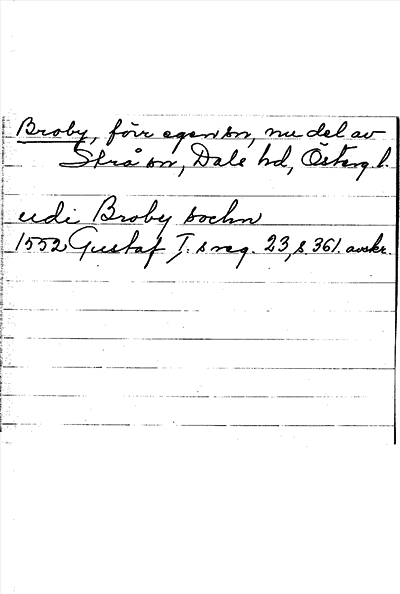 Broby, förr egen sn, nu del av
Strå sn, Dals hd, Östergl.
udi Broby sochn
1552 Gustaf I:s reg. 23, s. 361. avskr.